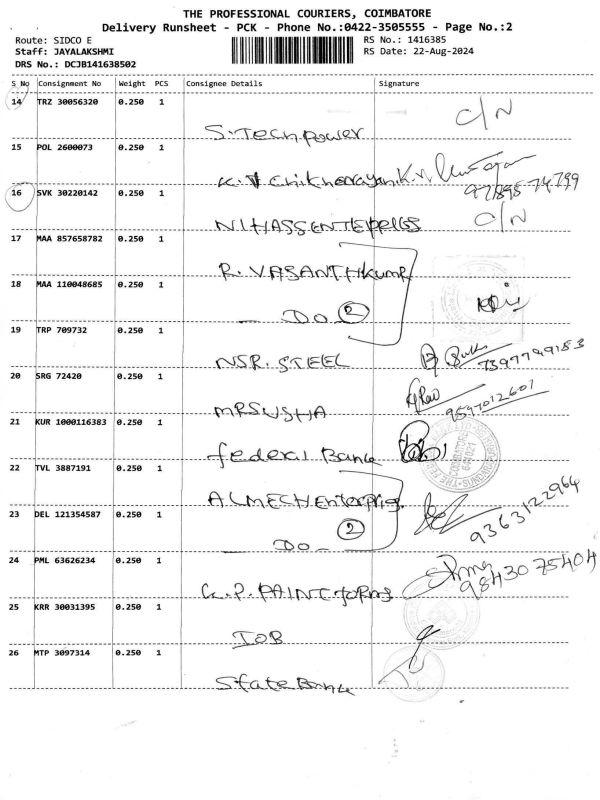 THE PROFESSIONAL COURIERS, COIMBATORE
Delivery Runsheet - PCK - Phone No.:0422-3505555 - Page No.:2
Route: SIDCO E RS No.: 1416385
Staff: JAYALAKSHMI RS Date: 22-Aug-2024
DRS No.: DCJB141638502
S No Consignment No Weight PCS Consignee Details Signature
14 TRZ 30056320 0.250 1 C/N
S. Tech power
15 POL 2600073 0.250 1
K.
97895 74799
16 SVK 30220142 0.250 1 C/N
17 MAA 857658782 0.250 1
R. VASANTHKumr
18 MAA 110048685 0.250 1
Do 2
19 TRP 709732 0.250 1
NSR. STEEL 7397749183
20 SRG 72420 0.250 1
MRSUSHA 9597012601
21 KUR 1000116383 0.250 1
federal Bank
22 TVL 3887191 0.250 1
A.C.MECH Enterprises
23 DEL 121354587 0.250 1
Do 2 9363122964
24 PML 63626234 0.250 1
9843075404
25 KRR 30031395 0.250 1
IOB
26 MTP 3097314 0.250 1
State Bank